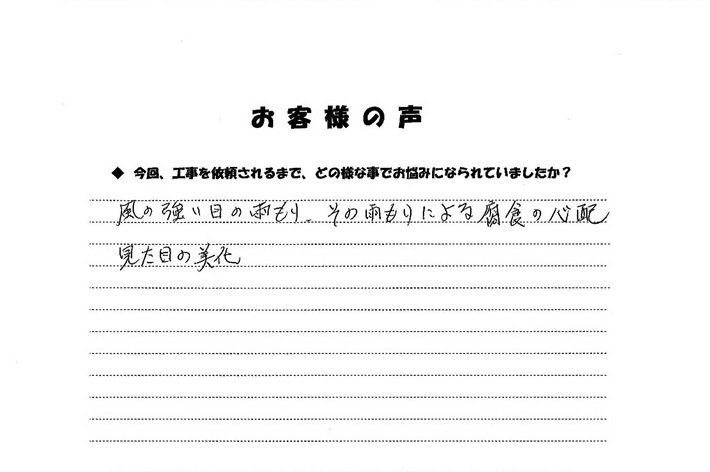 お客様の声
◆ 今回、工事を依頼されるまで、どの様な事でお悩みになられていましたか？
風の強い日の雨もり、その雨もりによる腐食の心配
見た目の美化